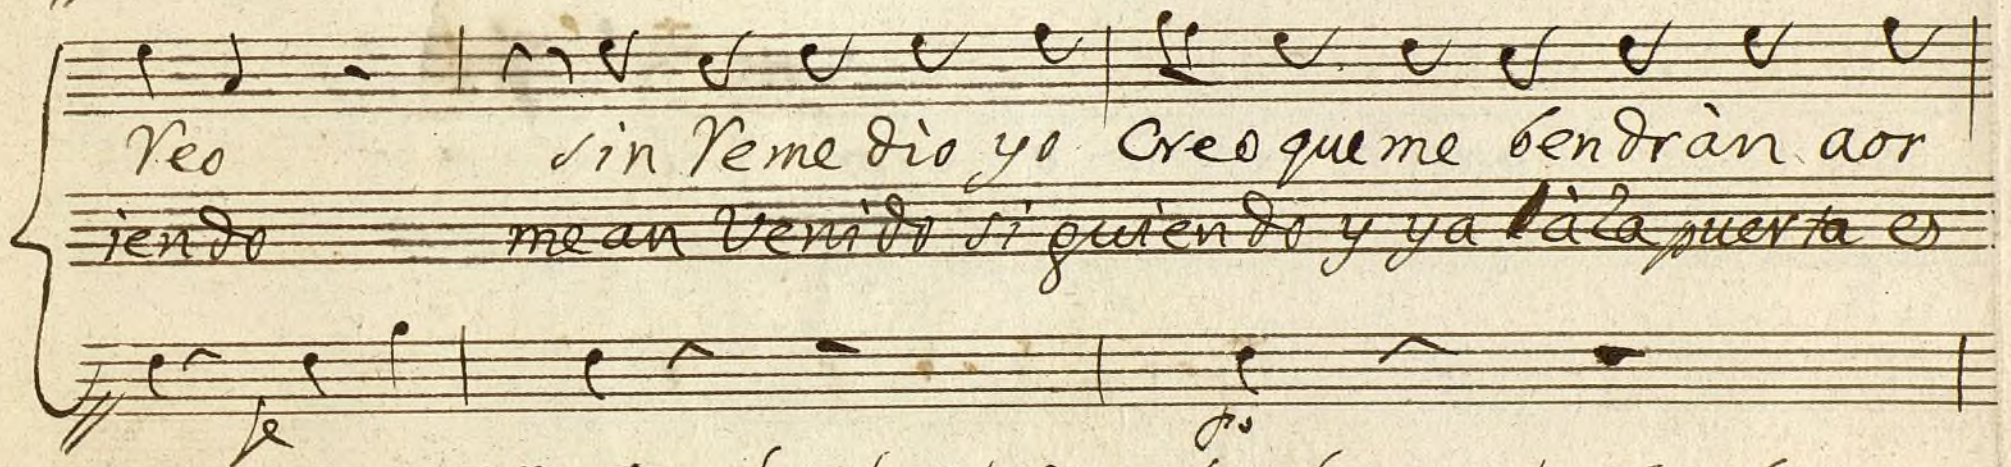 reo sin reme dio yo creo que me bendràn aor
iendo me an venido si guiendo y ya à la puerta es
fe po